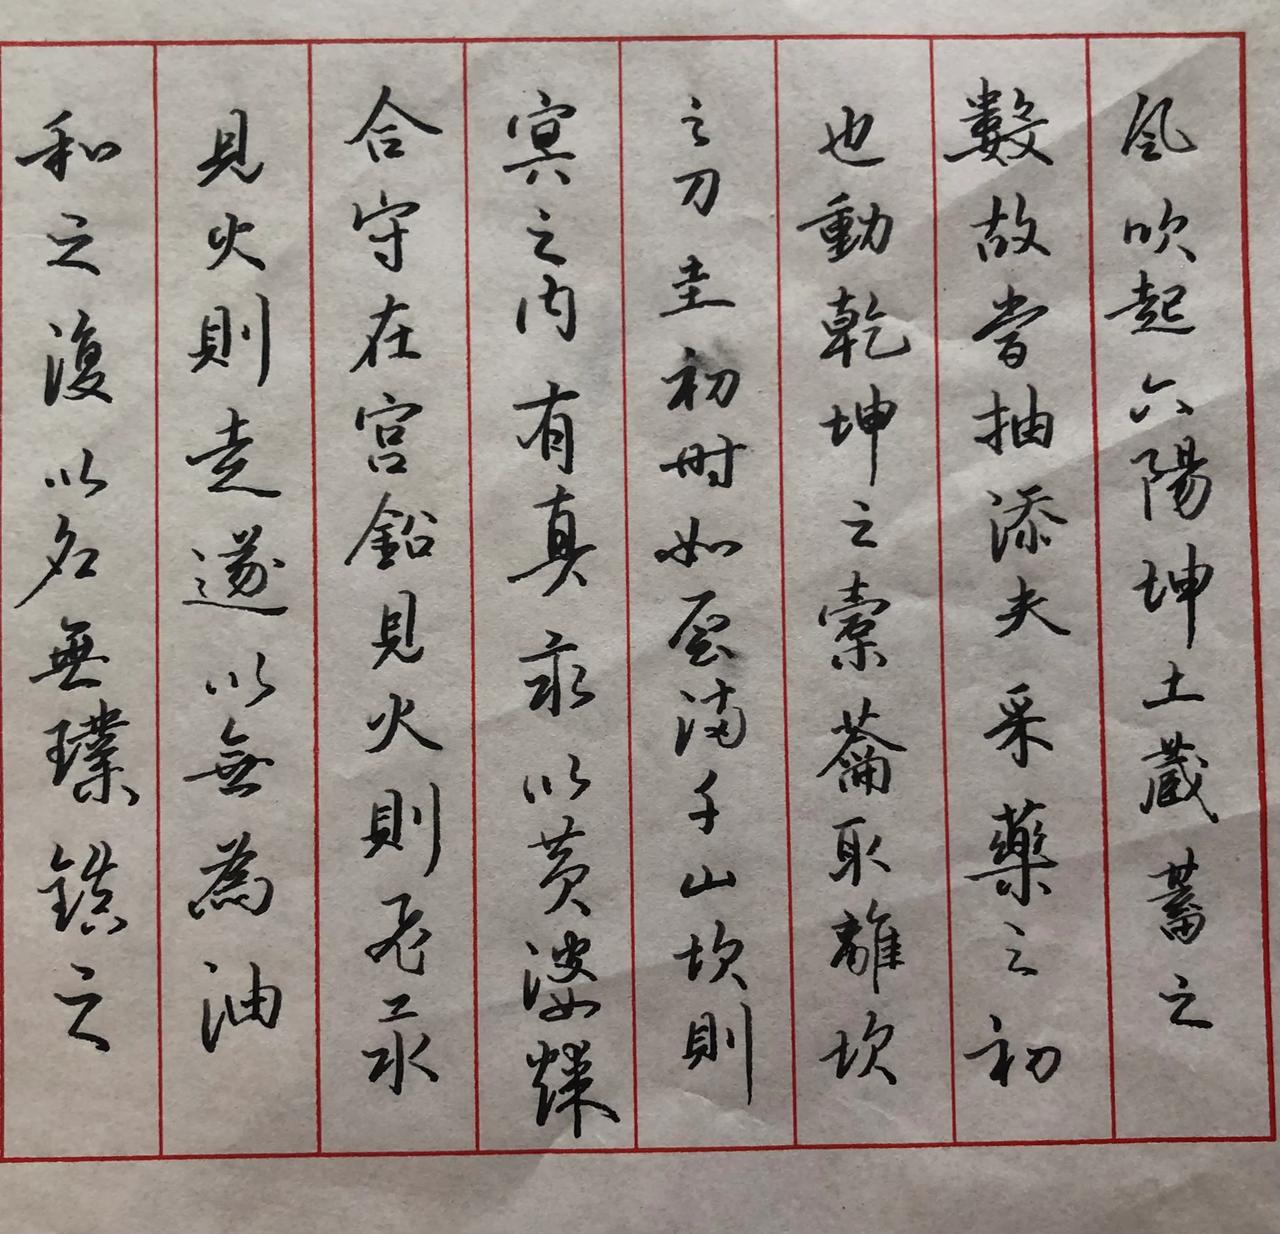 風吹起六陽坤土藏蓄之
數故當抽添夫采藥之初
也動乾坤之橐籥取離坎
之刀圭初時如雲滿千山坎則
冥之內有真汞以黃婆媒
合守在宮鉛見火則飛汞
見火則走遂以無為油
和之復以名無璞鎮之